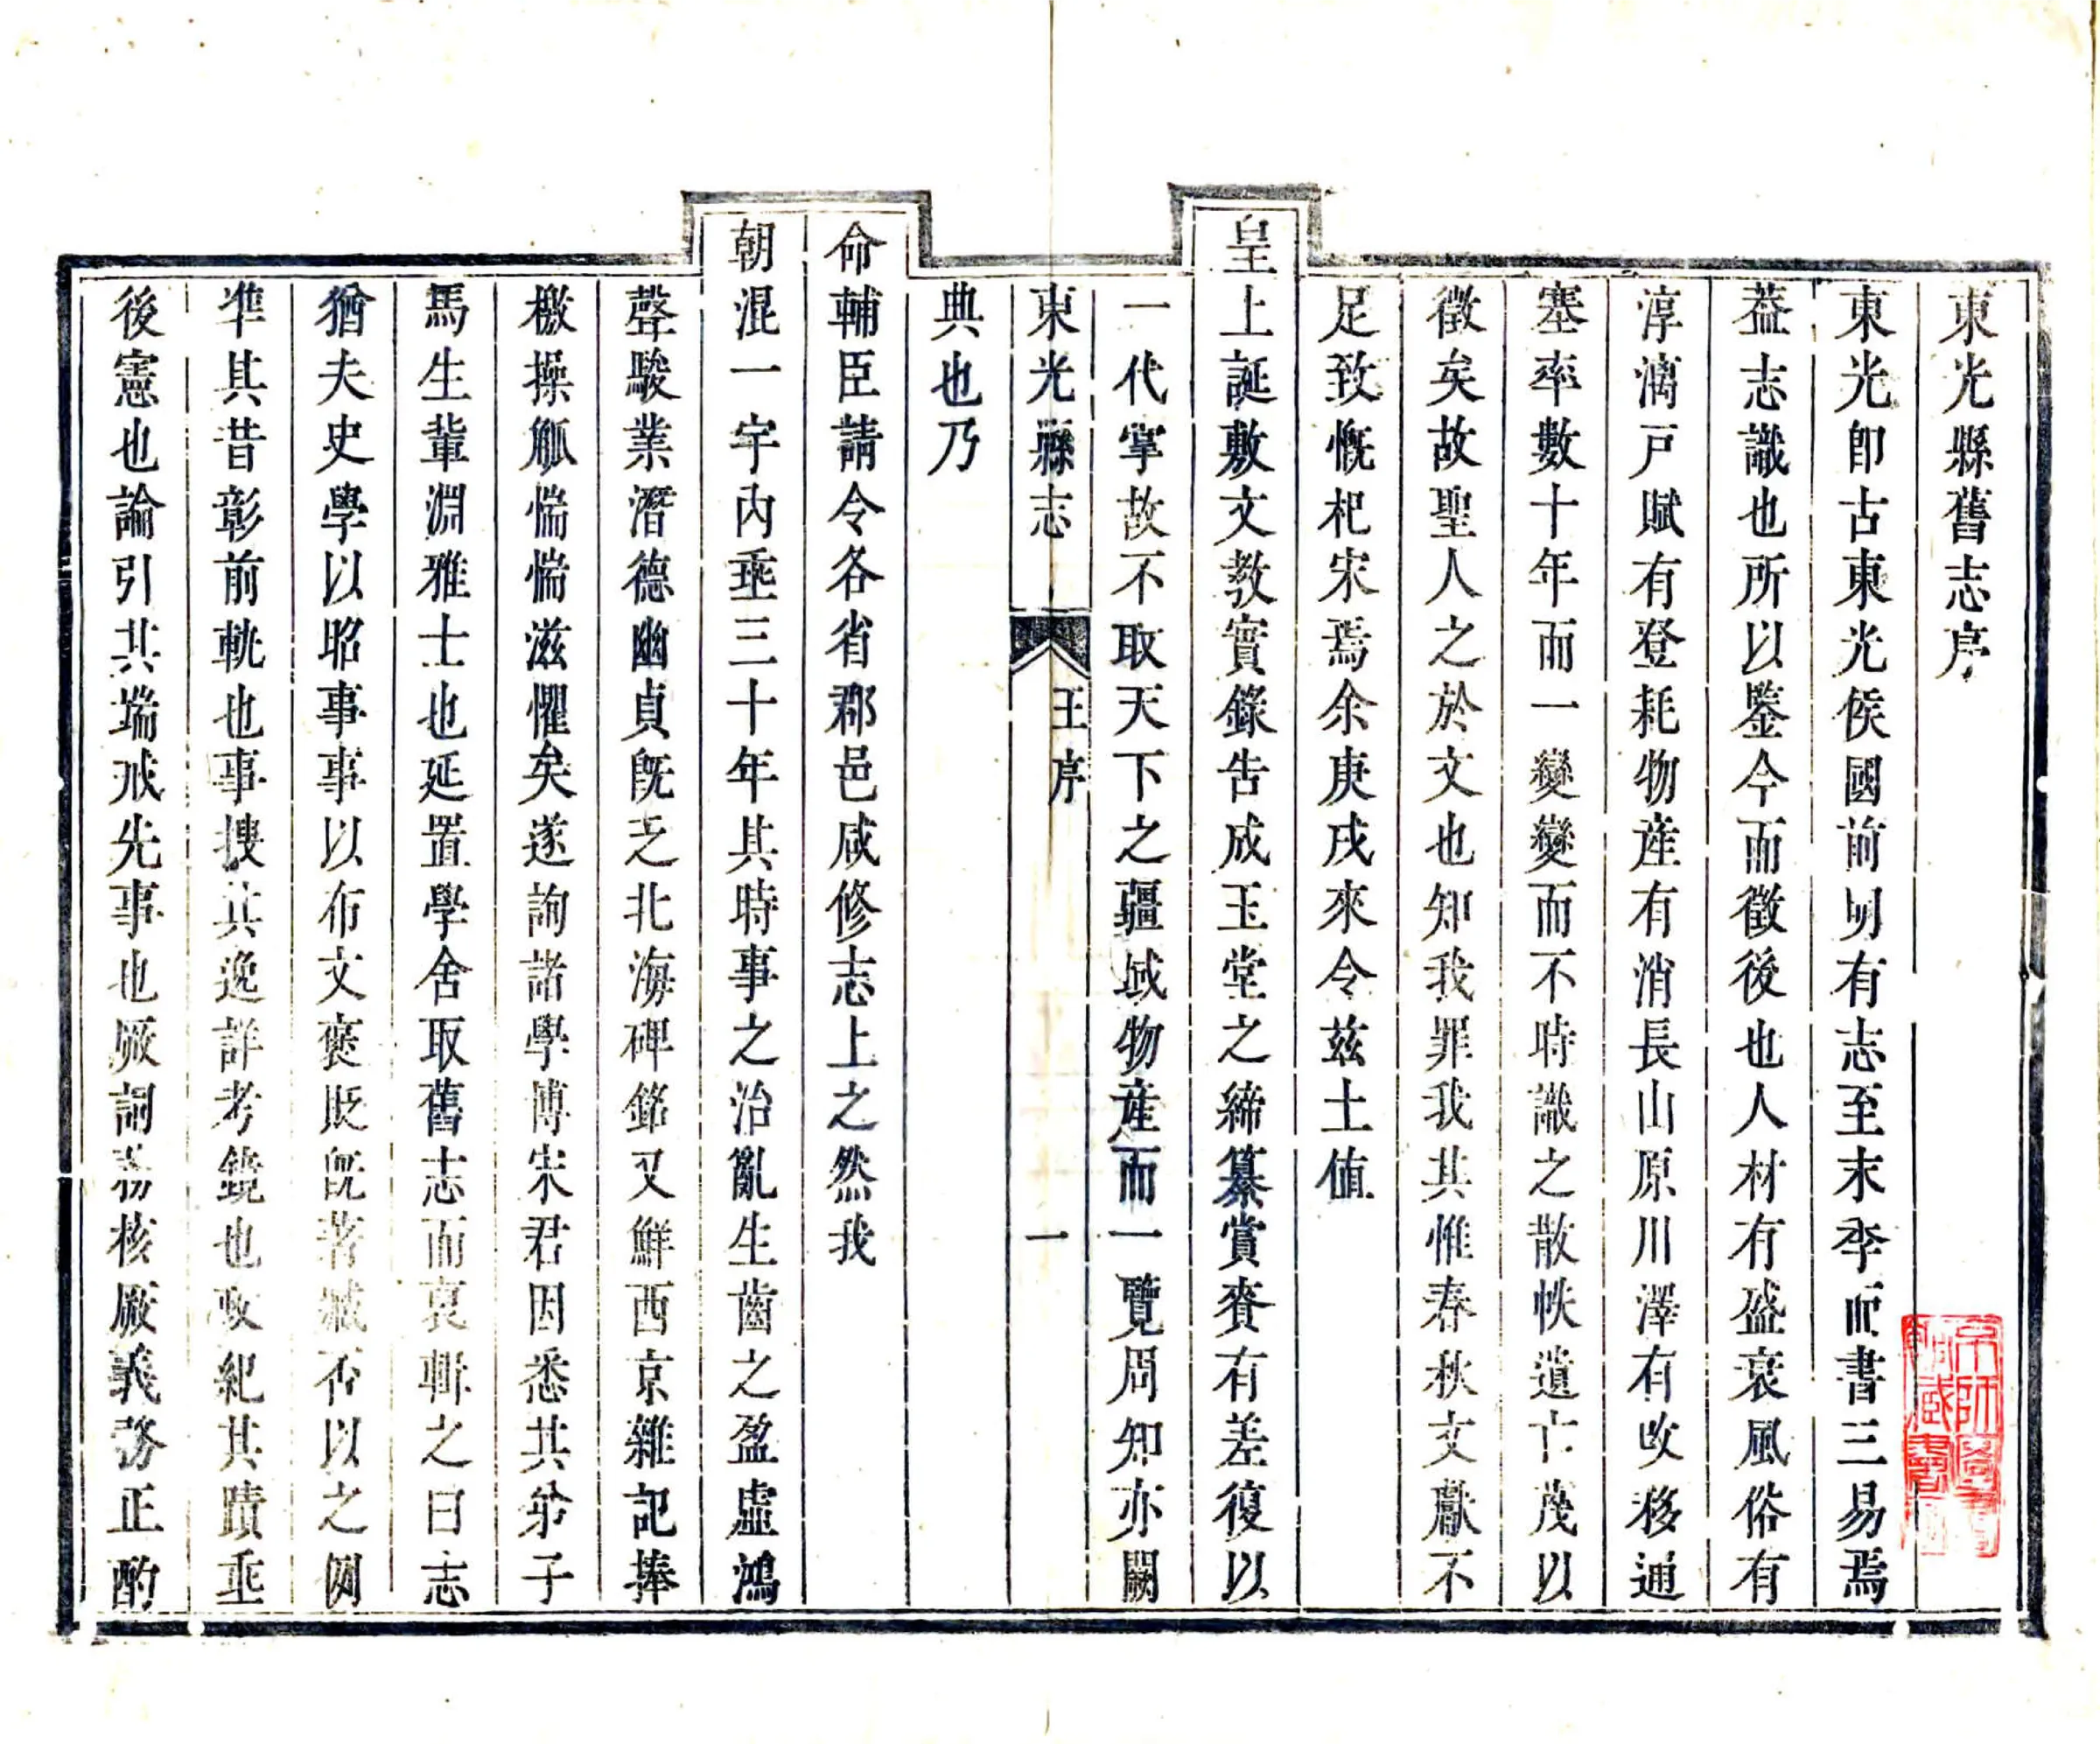 東光縣舊志序
東光卽古東光侯國前明有志至末季而書三易焉
葢志識也所以鑒今而徵後也人材有盛衰風俗有
淳漓戸賦有登耗物產有消長山原川澤有攺移通
塞率數十年而一變變而不時識之散帙遺亡茂以
徵矣故聖人之於文也知我罪我其惟春秋文獻不
足致慨杞宋焉余庚戌來令兹土值
皇上誕敷文教實錄告成玉堂之締纂賞賚有差復以
一代掌故不取天下之疆域物產而一覽周知亦闕
東光縣志
王序
一
典也乃
命輔臣請令各省郡邑咸修志上之然我
朝混一宇內埀三十年其時事之治亂生齒之盈虛鴻
聲駿業潛德幽貞旣乏北海碑銘又鮮西京雜記捧
檄操觚惴惴滋懼矣遂詢諸學博宋君因悉其弟子
馬生輩淵雅士也延置學舍取舊志而裒輯之曰志
猶夫史學以昭事事以布文褒貶旣著臧否以之例
準其昔彰前軌也事搜其逸詳考鏡也政紀其蹟埀
後憲也論引其端戒先事也厥詞務核厥義務正酌
京師圖書館收藏之印